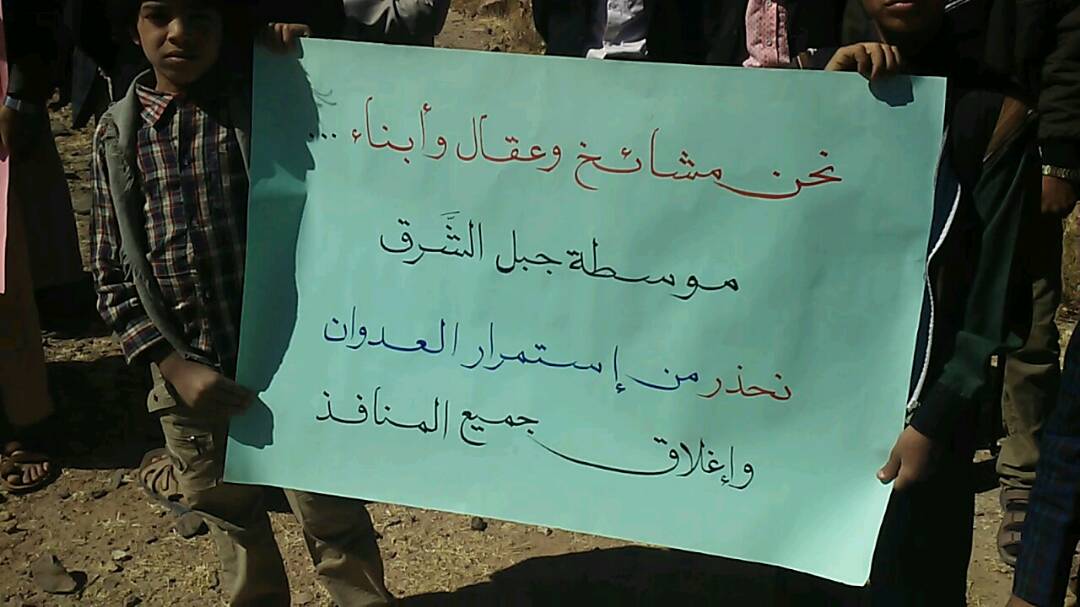 نحن مشائخ وعقال وأبناء ....
موسطة جبل الشَّرق
نحذر من إستمرار العدوان
وإغلاق جميع المنافذ